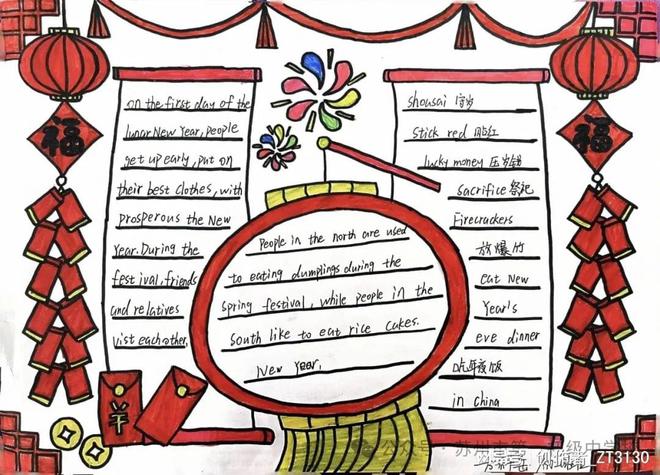 福
on the first day of the
lunar New Year, people
get up early, put on
their best clothes, with
prosperous the New
Year. During the
fest ival, friends
and relatives
vist each other.
People in the north are used
to eating dumplings during the
spring festival, while people in the
South like to eat rice cakes.
New Year,
shousai 守岁
stick red 贴红
lucky money 压岁钱
sacrifice 祭祀
Firecrackers
放爆竹
eat New
Year's
eve dinner
吃年夜饭
in China
福
¥
公众号·苏州市第 级中学校
ZT3130